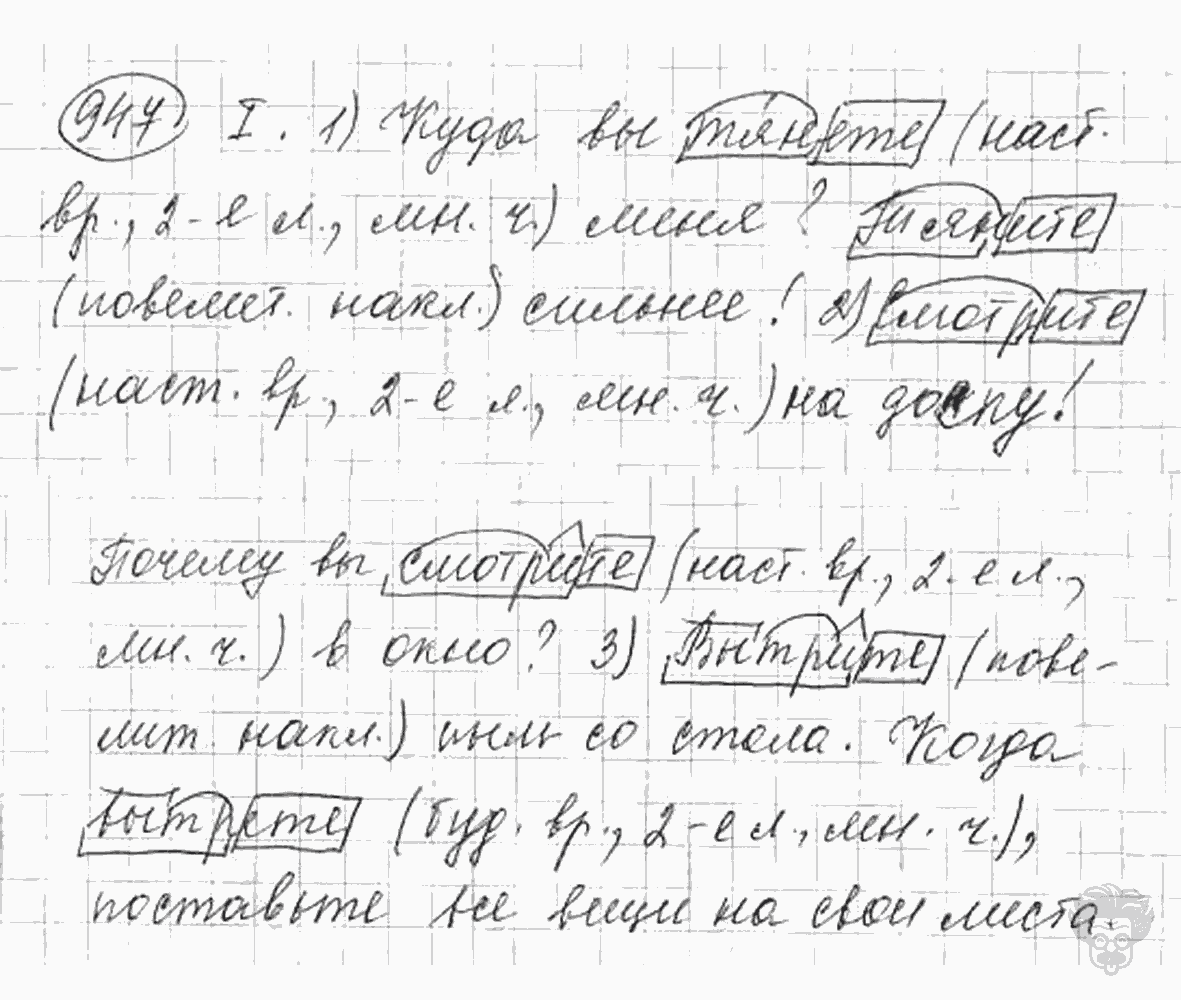 947 I. 1) Куда вы тянете (наст.
вр., 2-е л., мн. ч.) меня? Тяните
(повелит. накл.) сильнее! 2) Смотрите
(наст. вр., 2-е л., мн. ч.) на доску!
Почему вы смотрите (наст. вр., 2-е л.,
мн. ч.) в окно? 3) Вытрите (пове-
лит. накл.) пыль со стола. Когда
вытрете (буд. вр., 2-е л., мн. ч.),
поставьте все вещи на свои места.